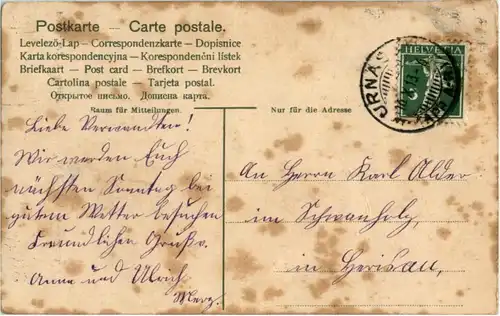 Postkarte — Carte postale.
Levelező-Lap — Correspondenzkarte — Dopisnice
Karta korespondencyjna — Korespondenční lístek
Briefkaart — Post card — Brefkort — Brevkort
Cartolina postale — Tarjeta postal.
Открытое письмо. Дописна карта.
Raum für Mitteilungen.
Liebe Verwandten!
Wir werden Euch
nächsten Sonntag bei
gutem Wetter besuchen
Freundlichen Gruß v.
Anna und Ulrich
Merz.
HELVETIA
URNÄS
Nur für die Adresse
An Herrn Karl Alder
im Schwanholz,
in Herisau,